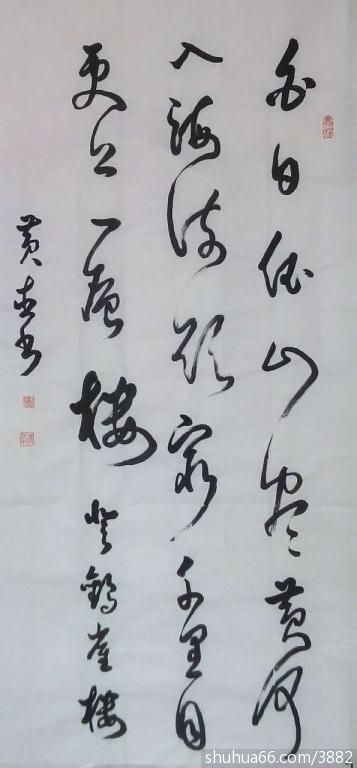 白日依山尽黄河
入海流欲穷千里目
更上一层楼登鹳雀楼
黄书
shuhua66.com/3882